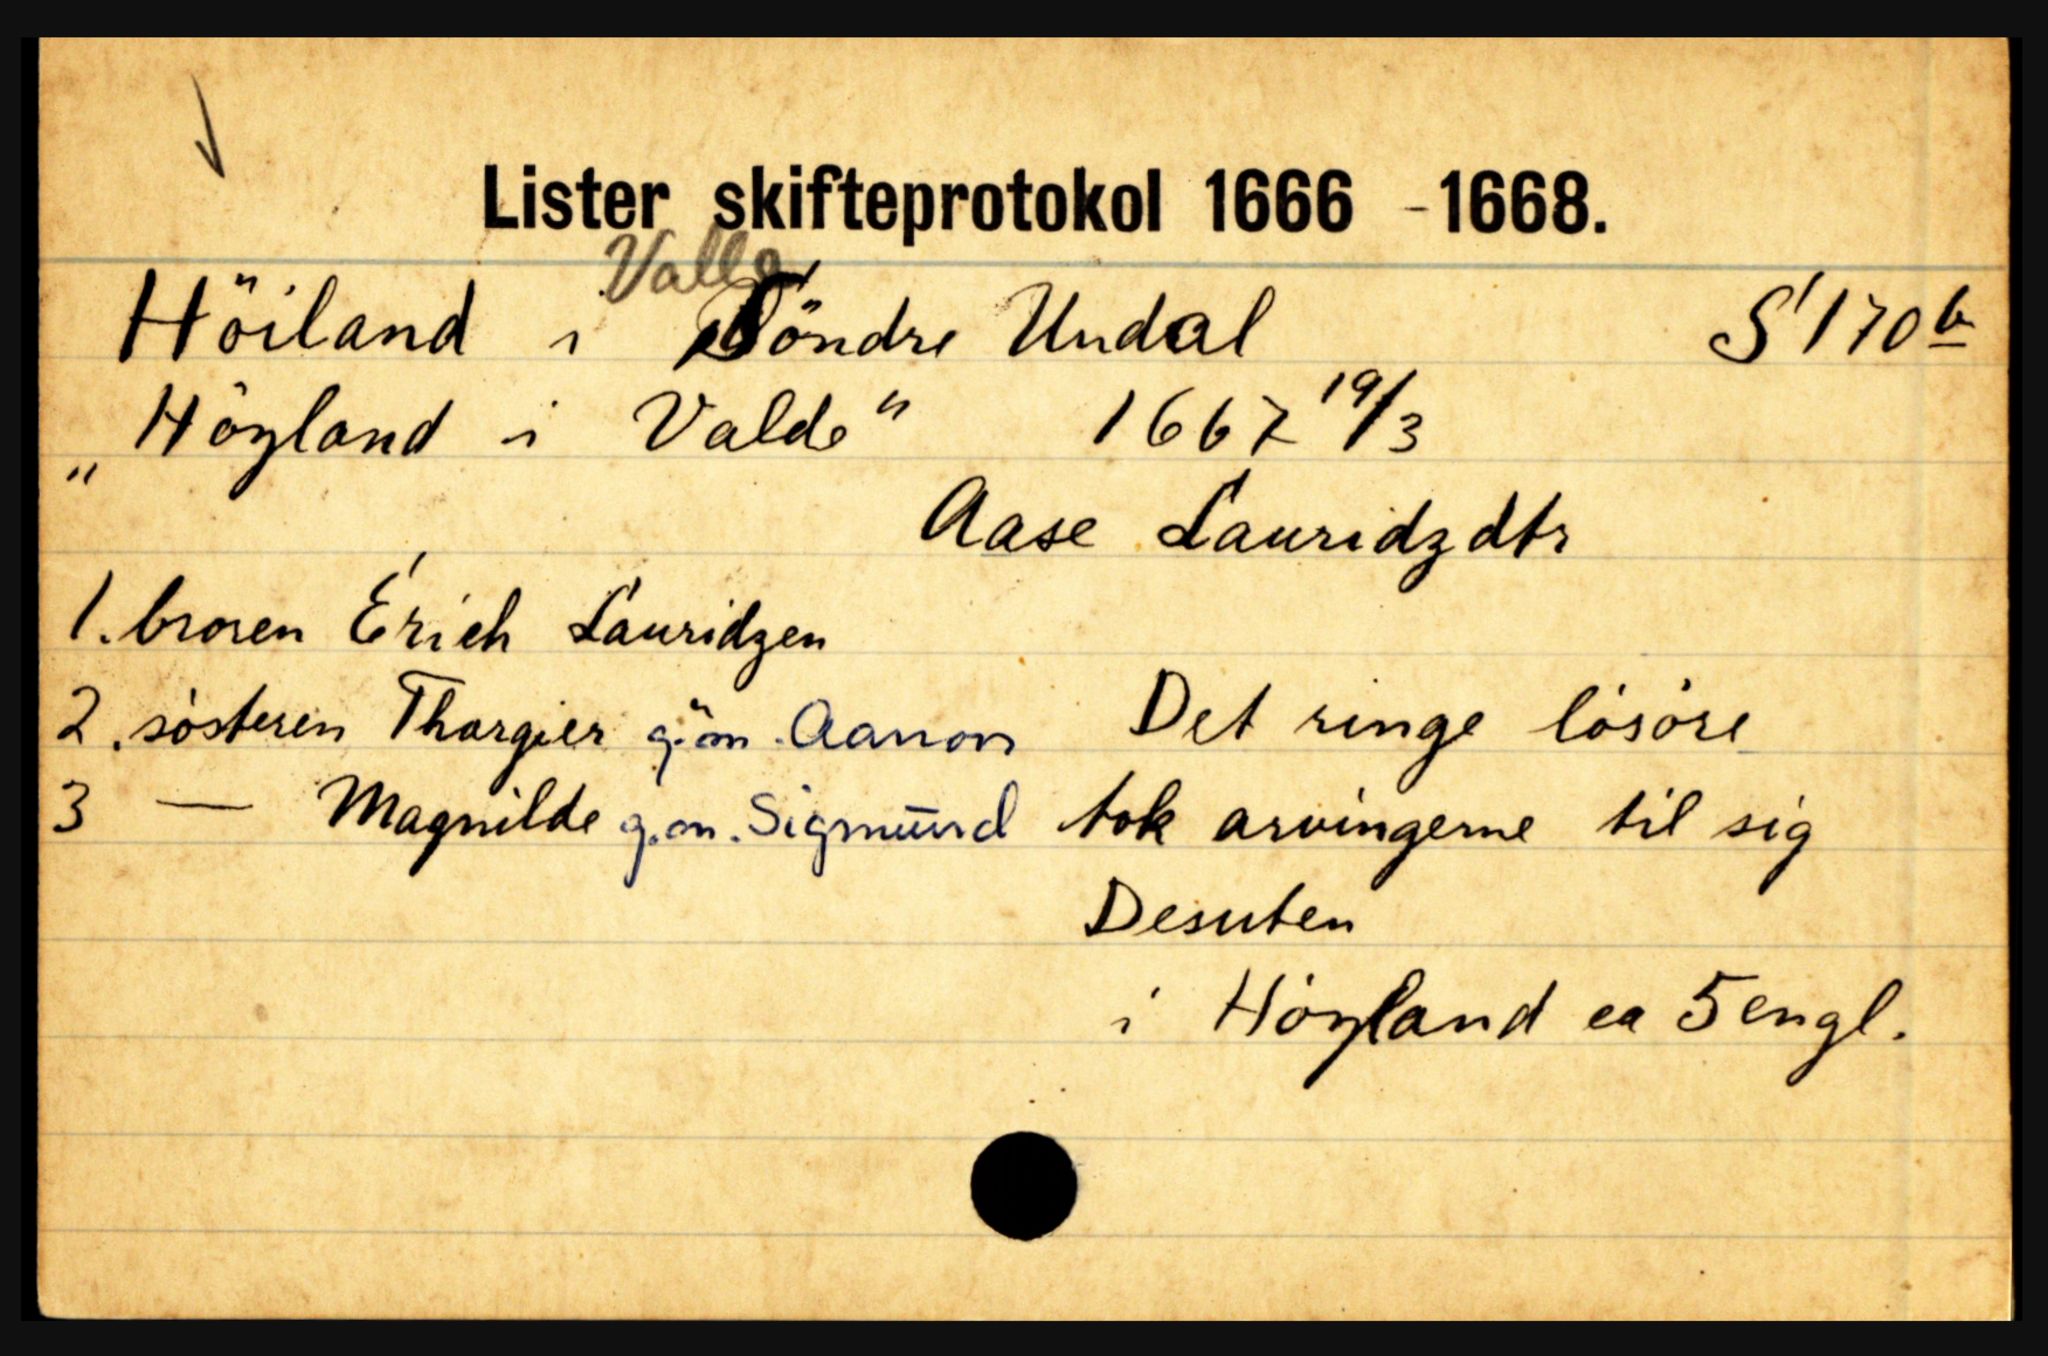 Lister skifteprotokol 1666 - 1668.
Valle
Höiland i Söndre Undal S 170 b
"Höyland i Valde" 1667 19/3
Aase Lauridzdtr
1. broren Erich Lauridzen
2. søsteren Thorgier g.m. Aanon Det ringe lösöre
3 — Magnilde g.m. Sigmund tok arvingerne til sig
Desuten
i Höyland ca 5 engl.